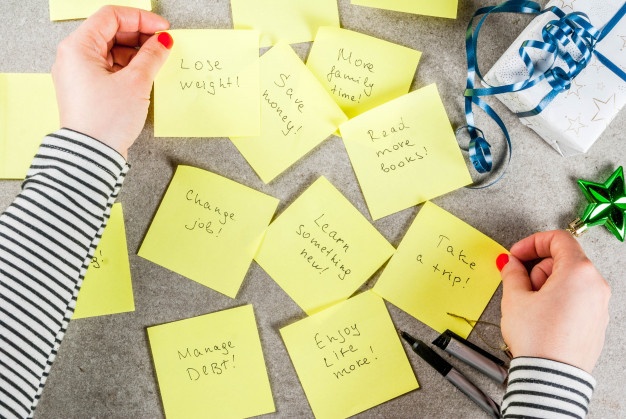 Lose
weight!
Save
money!
More
family
time!
Read
more
books!
Change
job!
Learn
something
new!
Take
a trip!
g!
Manage
DEBT!
Enjoy
Life
more!